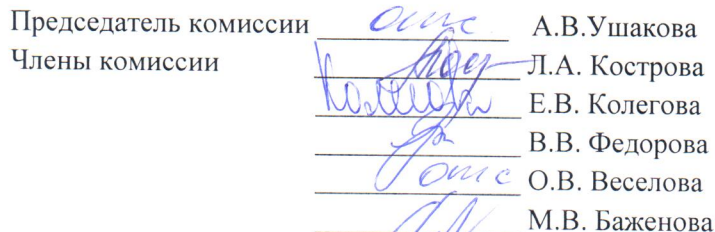 Председатель комиссии отс А.В.Ушакова
Члены комиссии Л.А. Кострова
Е.В. Колегова
В.В. Федорова
отс О.В. Веселова
М.В. Баженова